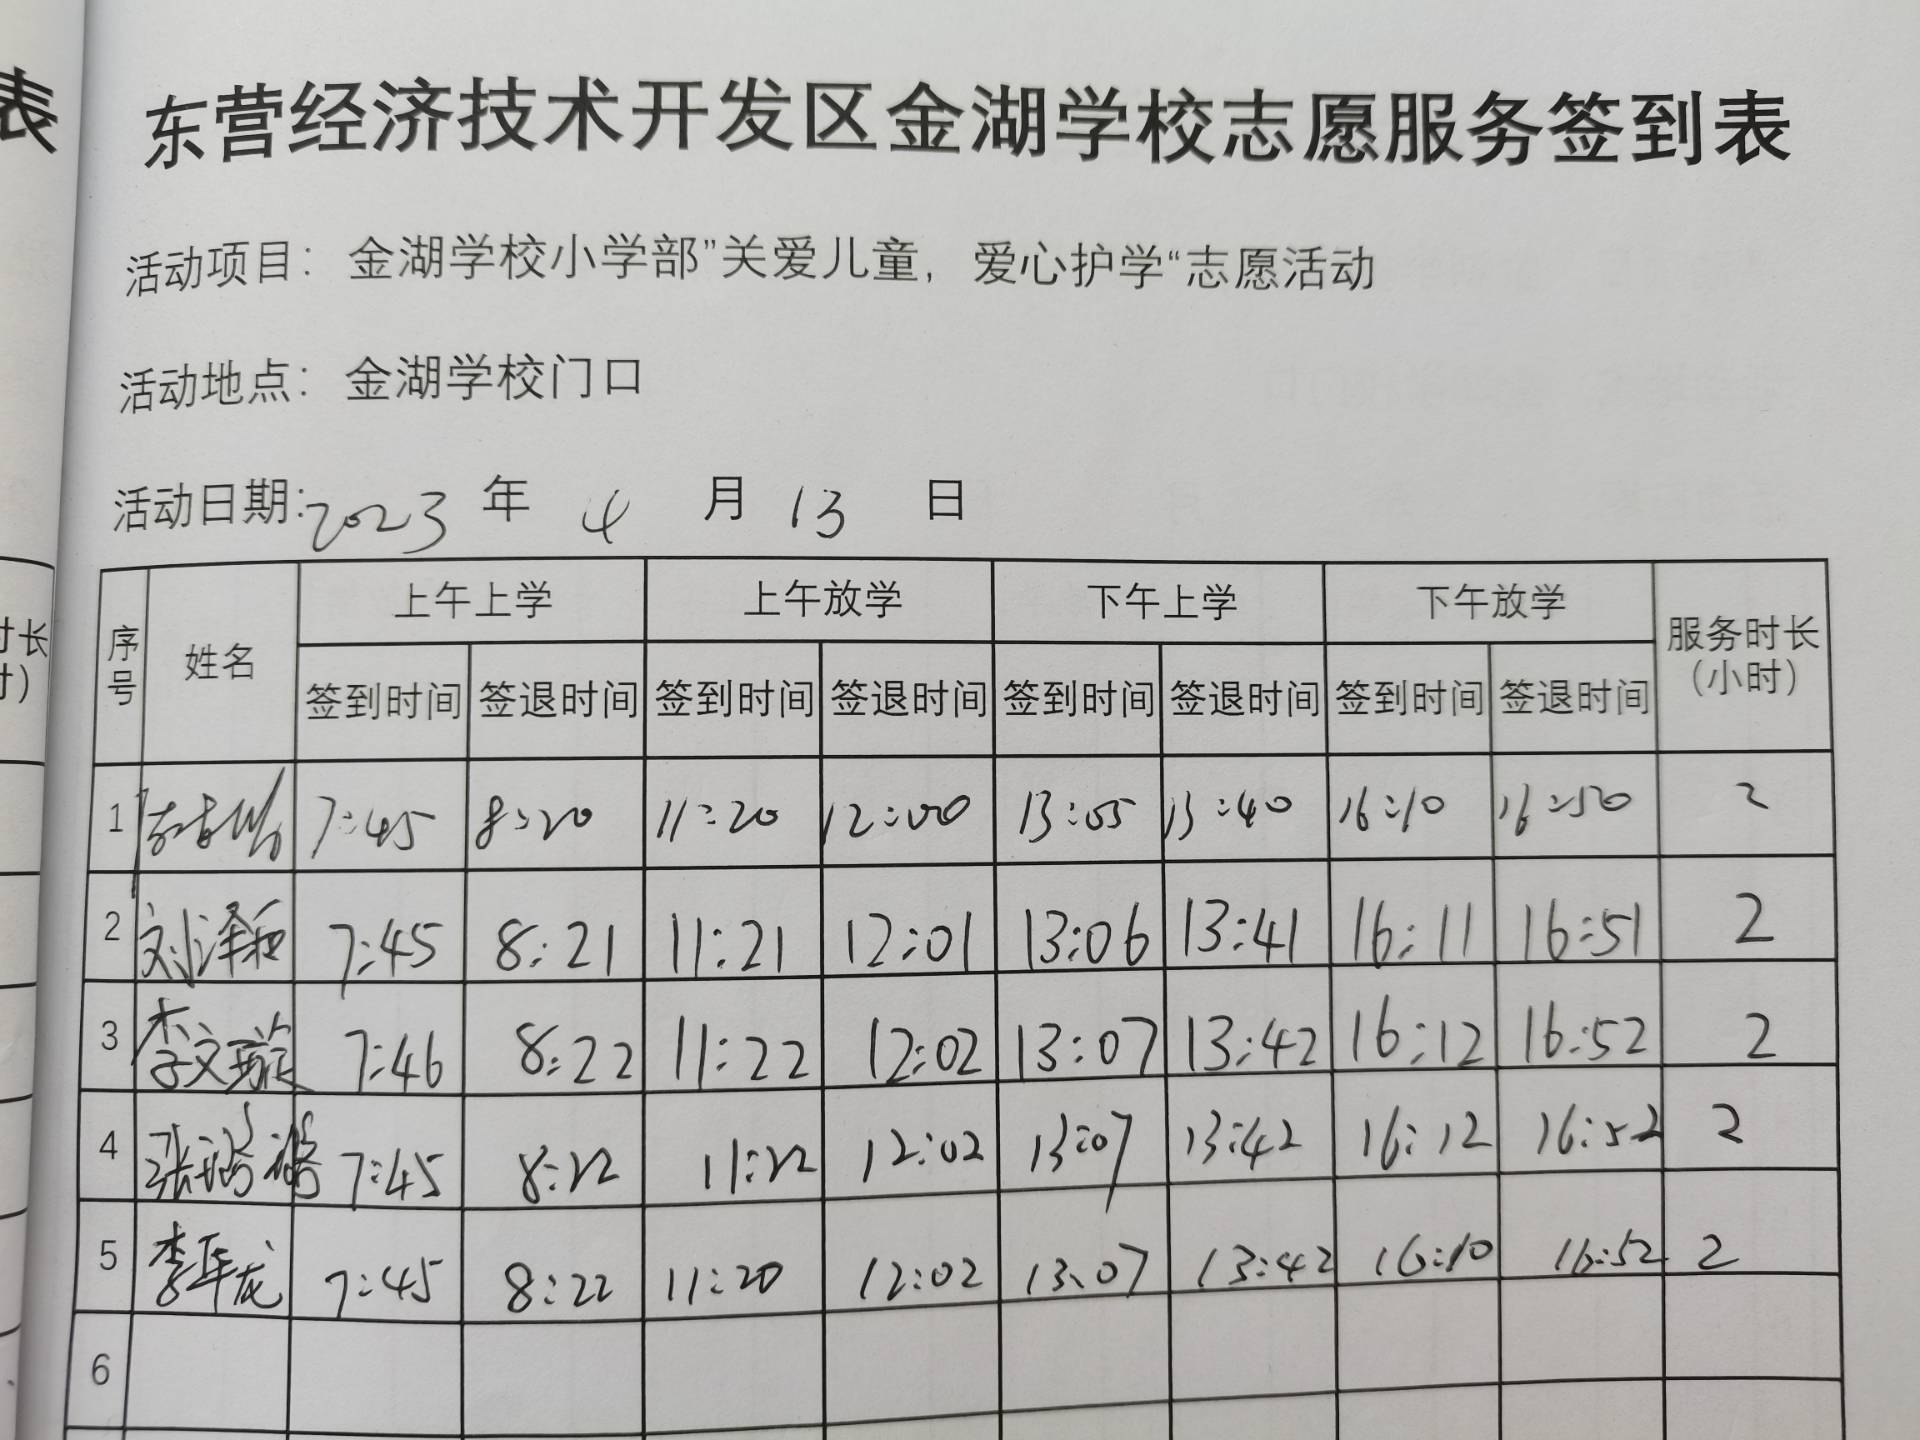 表
东营经济技术开发区金湖学校志愿服务签到表
活动项目：金湖学校小学部”关爱儿童，爱心护学“志愿活动
活动地点：金湖学校门口
活动日期：2023 年 4 月 13 日
序号 姓名 上午上学 上午放学 下午上学 下午放学 服务时长（小时）
签到时间 签退时间 签到时间 签退时间 签到时间 签退时间 签到时间 签退时间
1 7:45 8:20 11:20 12:00 13:05 13:40 16:10 16:50 2
2 刘泽和 7:45 8:21 11:21 12:01 13:06 13:41 16:11 16:51 2
3 李文璇 7:46 8:22 11:22 12:02 13:07 13:42 16:12 16:52 2
4 张 7:45 8:22 11:22 12:02 13:07 13:42 16:12 16:52 2
5 李年龙 7:45 8:22 11:20 12:02 13:07 13:42 16:10 16:52 2
6